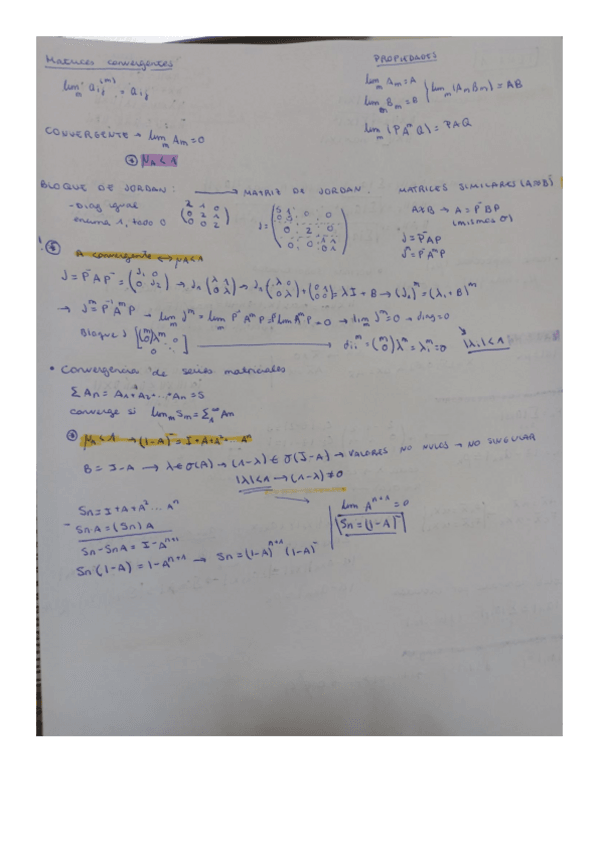 Matrices convergentes
lim_m a_ij^(m) = a_ij
PROPIEDADES
lim_m A_m = A
lim_m B_m = B } lim_m (A_m B_m) = AB
lim_m (P A^m Q) = PAQ
CONVERGENTE → lim_m A_m = 0
μ_A < 1
BLOQUE DE JORDAN: → MATRIZ DE JORDAN. MATRICES SIMILARES (A∧B)
- Diag igual
encima 1, todo 0
(2 1 0
0 2 1
0 0 2)
J = (5 1 0 0
0 5
0 2 0
0 0 1 1
0 1)
A≈B → A = P⁻BP
(mismos σ)
J = P⁻AP
J^m = P⁻A^mP
A convergente ↔ μA<1
J = P⁻AP = (J₁ 0 0 J₂) → J₁ (λ 1 0 λ) → J₁ (λ 0 0 λ) + (0 1 0 0) = λI + B → (J₁)^m = (λ₁ + B)^m
→ J^m = P⁻¹A^mP → lim_m J^m = lim_m P⁻A^mP = P⁻ lim A^m P = 0 → lim_m J^m = 0 → diag = 0
Bloque J [(m 0)λ^m 0 0] → d_ii^m = (m 0)λ^m = λ_i^m = 0 |λ_i| < 1
• Convergencia de series matriciales
∑ An = A1 + A2 + ... + An = S
converge si lim_m Sm = ∑₁^∞ An
μ_A < 1 → (1-A)⁻ = I + A + A² ... A^n
B = I - A → λ ∈ σ(A) → (1-λ) ∈ σ(I-A) → VALORES NO NULOS → NO SINGULAR
|λ| < 1 → (1-λ) ≠ 0
Sn = I + A + A² ... A^n
- Sn A = (Sn) A
Sn - SnA = I - A^n+1
Sn (1-A) = 1 - A^n+1 → Sn = (1-A)^n+1 (1-A)⁻
lim A^n+1 = 0
Sn = (1-A)⁻